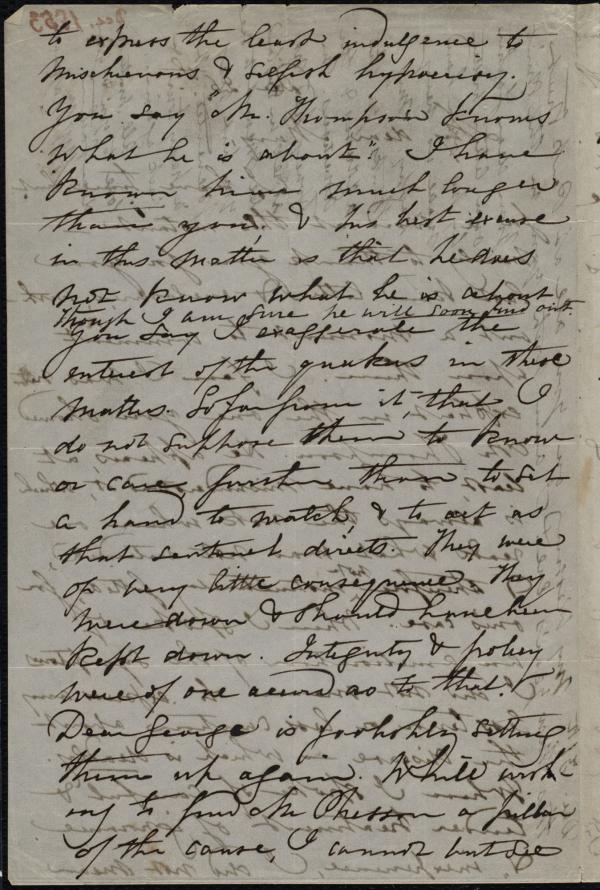 Dec. 1853
to express the least indulgence to
mischievous & selfish hypocrisy.
You say "Mr. Thompson knows
what he is about". I have
known him much longer
than you, & his best excuse
in this matter is that he does
not know what he is about
though I am sure he will soon find out.
You say I exaggerate the
interest of the quakers in these
matters. So far from it, that I
do not suppose them to know
or care further than to set
a hand to watch, & to act as
that sentinel directs. They were
of very little consequence. They
were down & should have been
kept down. Integrity & policy
were of one accord as to that.
Dear George is foolishly setting
them up again. While wish
ing to find Mr Chesson a pillar
of the cause, I cannot but see